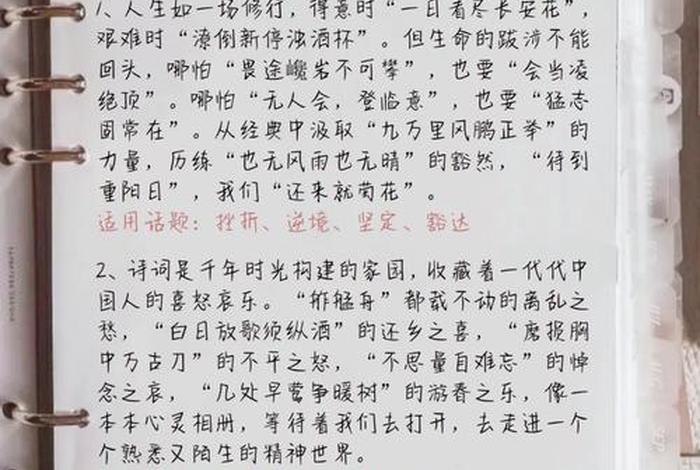 1、人生如一场修行，得意时“一日看尽长安花”，
艰难时“潦倒新停浊酒杯”。但生命的跋涉不能
回头，哪怕“畏途巉岩不可攀”，也要“会当凌
绝顶”。哪怕“无人会，登临意”，也要“猛志
固常在”。从经典中汲取“九万里风鹏正举”的
力量，历练“也无风雨也无晴”的豁然，“待到
重阳日”，我们“还来就菊花”。
适用话题：挫折、逆境、坚定、豁达
2、诗词是千年时光构建的家园，收藏着一代代中
国人的喜怒哀乐。“舴艋舟”都载不动的离乱之
愁，“白日放歌须纵酒”的还乡之喜，“磨损胸
中万古刀”的不平之怒，“不思量自难忘”的悼
念之哀，“几处早莺争暖树”的游春之乐，像一
本本心灵相册，等待着我们去打开，去走进一个
个熟悉又陌生的精神世界。